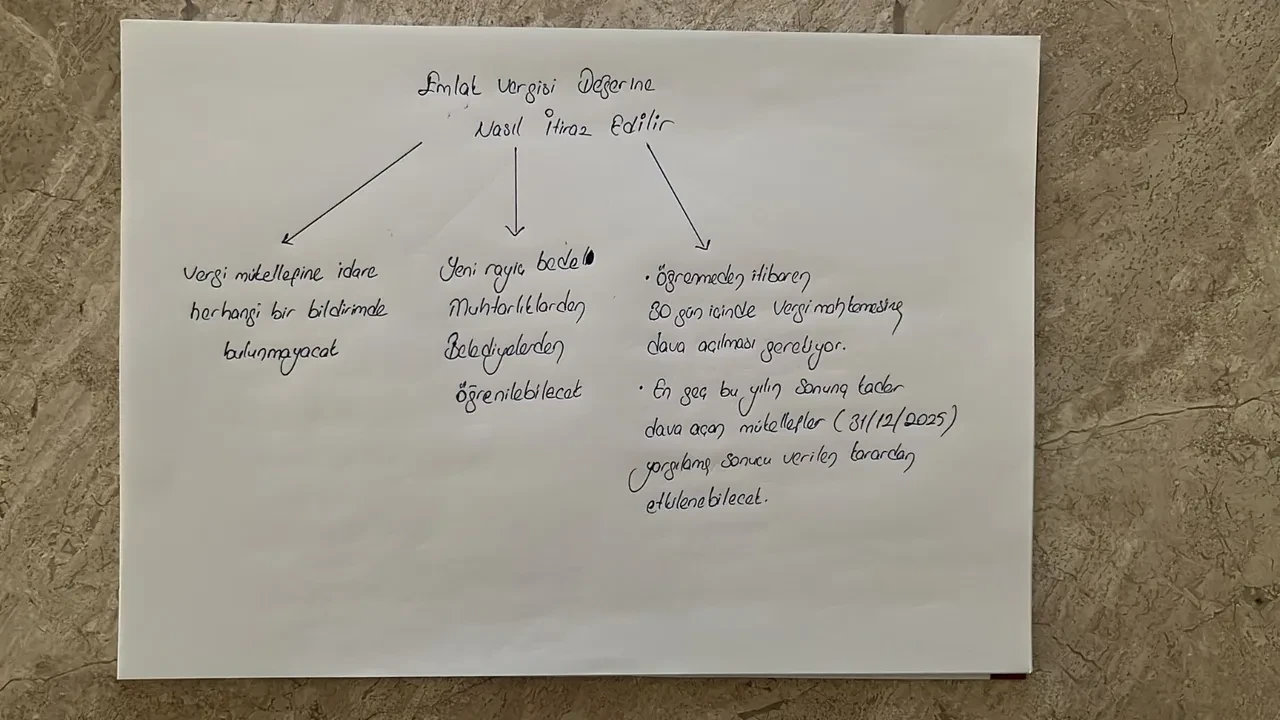 Emlak Vergisi Değerine
Nasıl İtiraz Edilir
Vergi mükellefine idare
herhangi bir bildirimde
bulunmayacak
Yeni rayiç bedel
Muhtarlıklardan
Belediyelerden
öğrenilebilecek
• öğrenmeden itibaren
30 gün içinde Vergi mahkemesine
dava açılması gerekiyor.
• En geç bu yılın sonuna kadar
dava açan mükellefler (31/12/2025)
yargılama sonucu verilen karardan
etkilenebilecek.